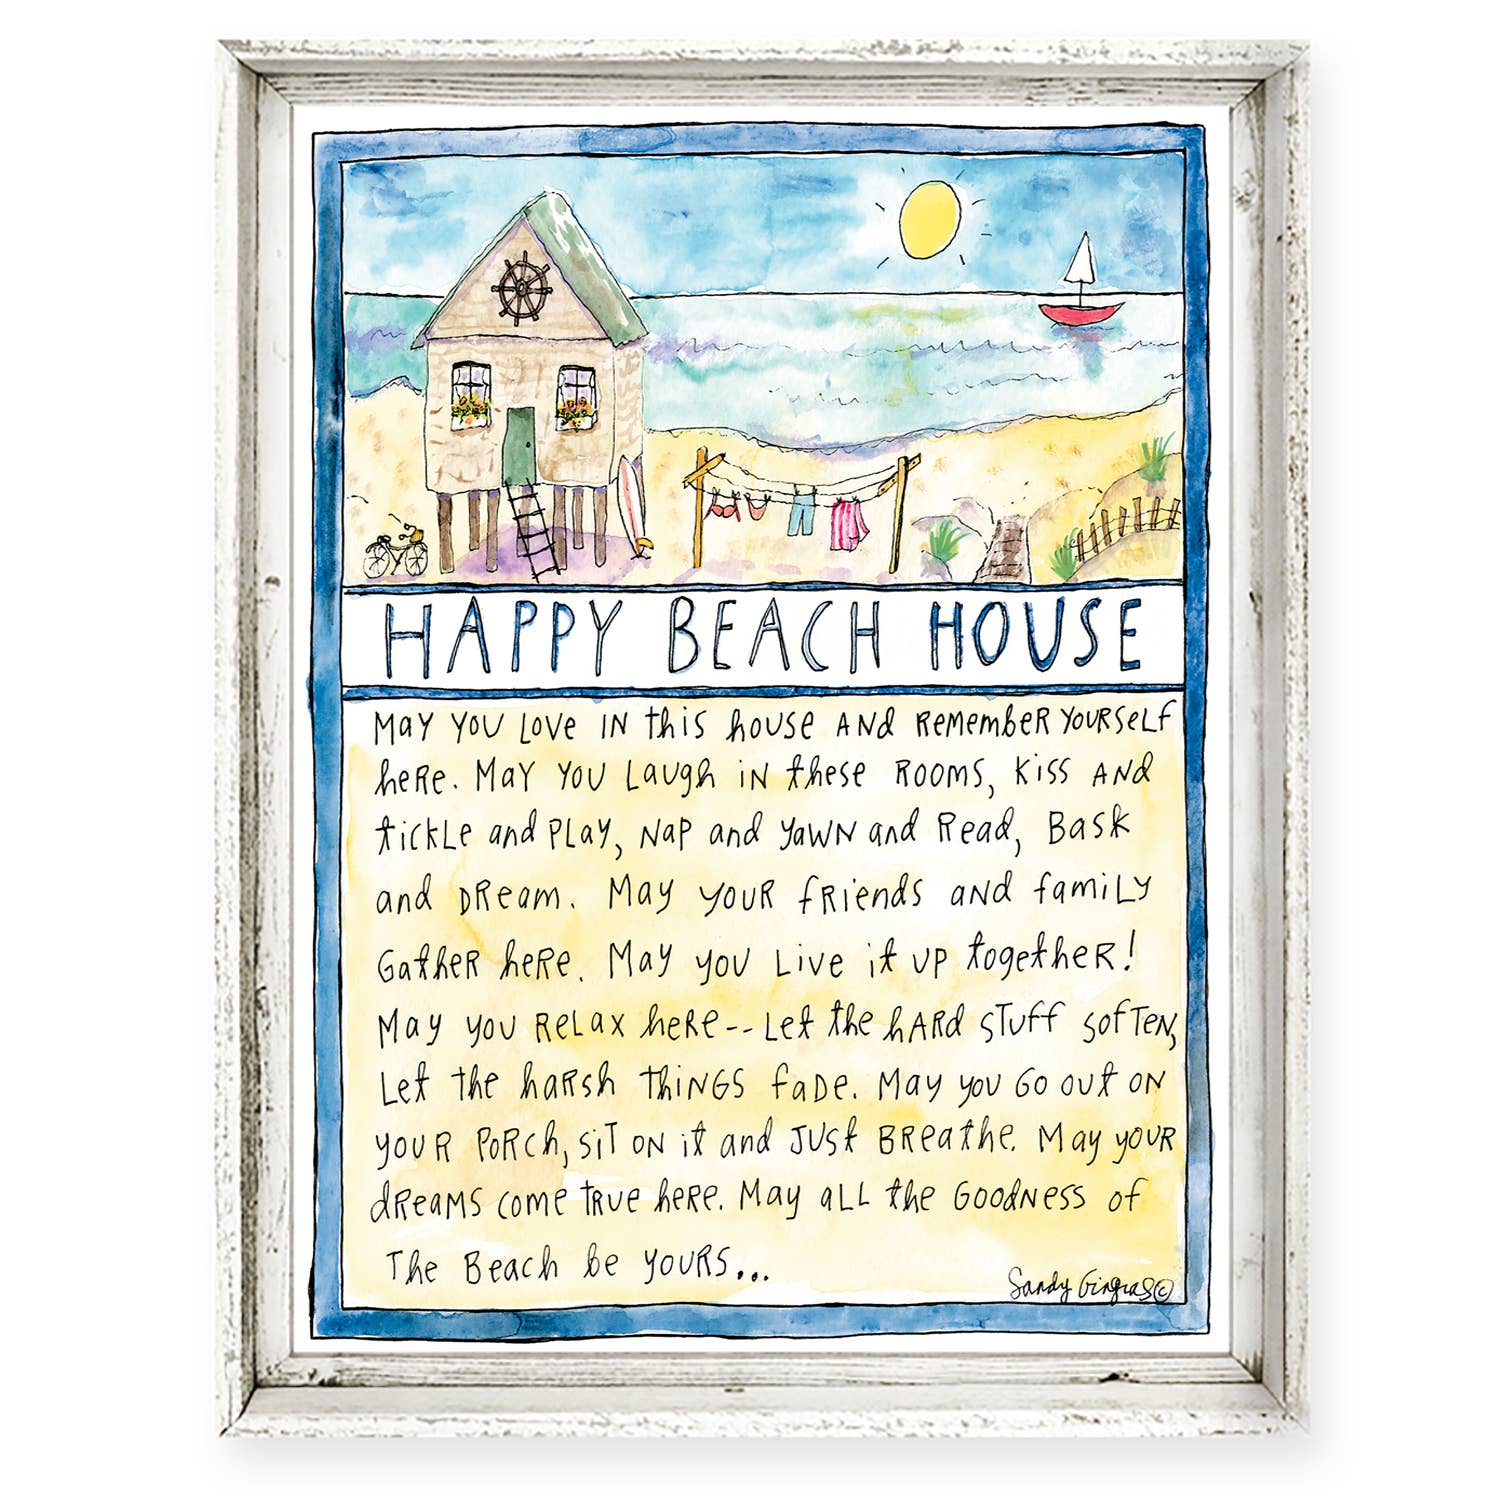 HAPPY BEACH HOUSE
May you love in this house and remember yourself
here. May you laugh in these rooms, kiss and
tickle and play, nap and yawn and read, bask
and dream. May your friends and family
gather here. May you live it up together!
May you relax here-- Let the hard stuff soften,
Let the harsh things fade. May you go out on
your porch, sit on it and just breathe. May your
dreams come true here. May all the goodness of
The Beach be yours...
Sandy Gingras©